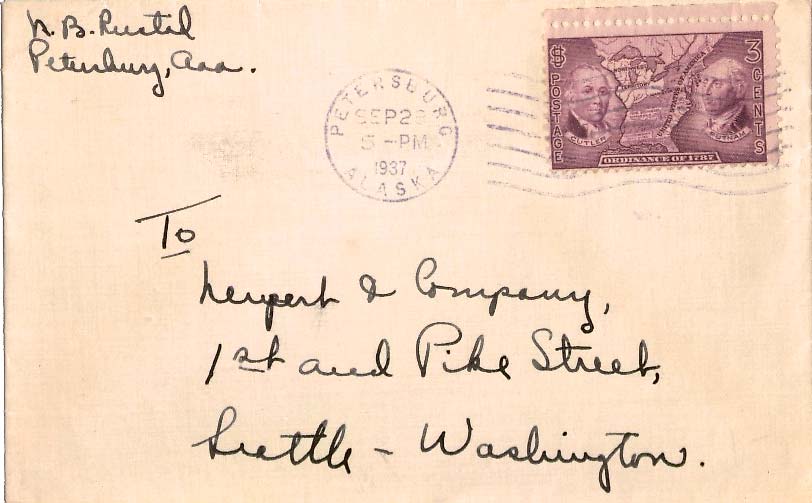 N. B. Rustad
Petersburg, Aaa.
PETERSBURG
SEP 28
5 - PM
1937
ALASKA
$ POSTAGE
3 CENTS
UNITED STATES OF AMERICA
CUTLER
PUTNAM
ORDINANCE OF 1787
To
& Company,
1st and Pike Street,
Seattle - Washington.